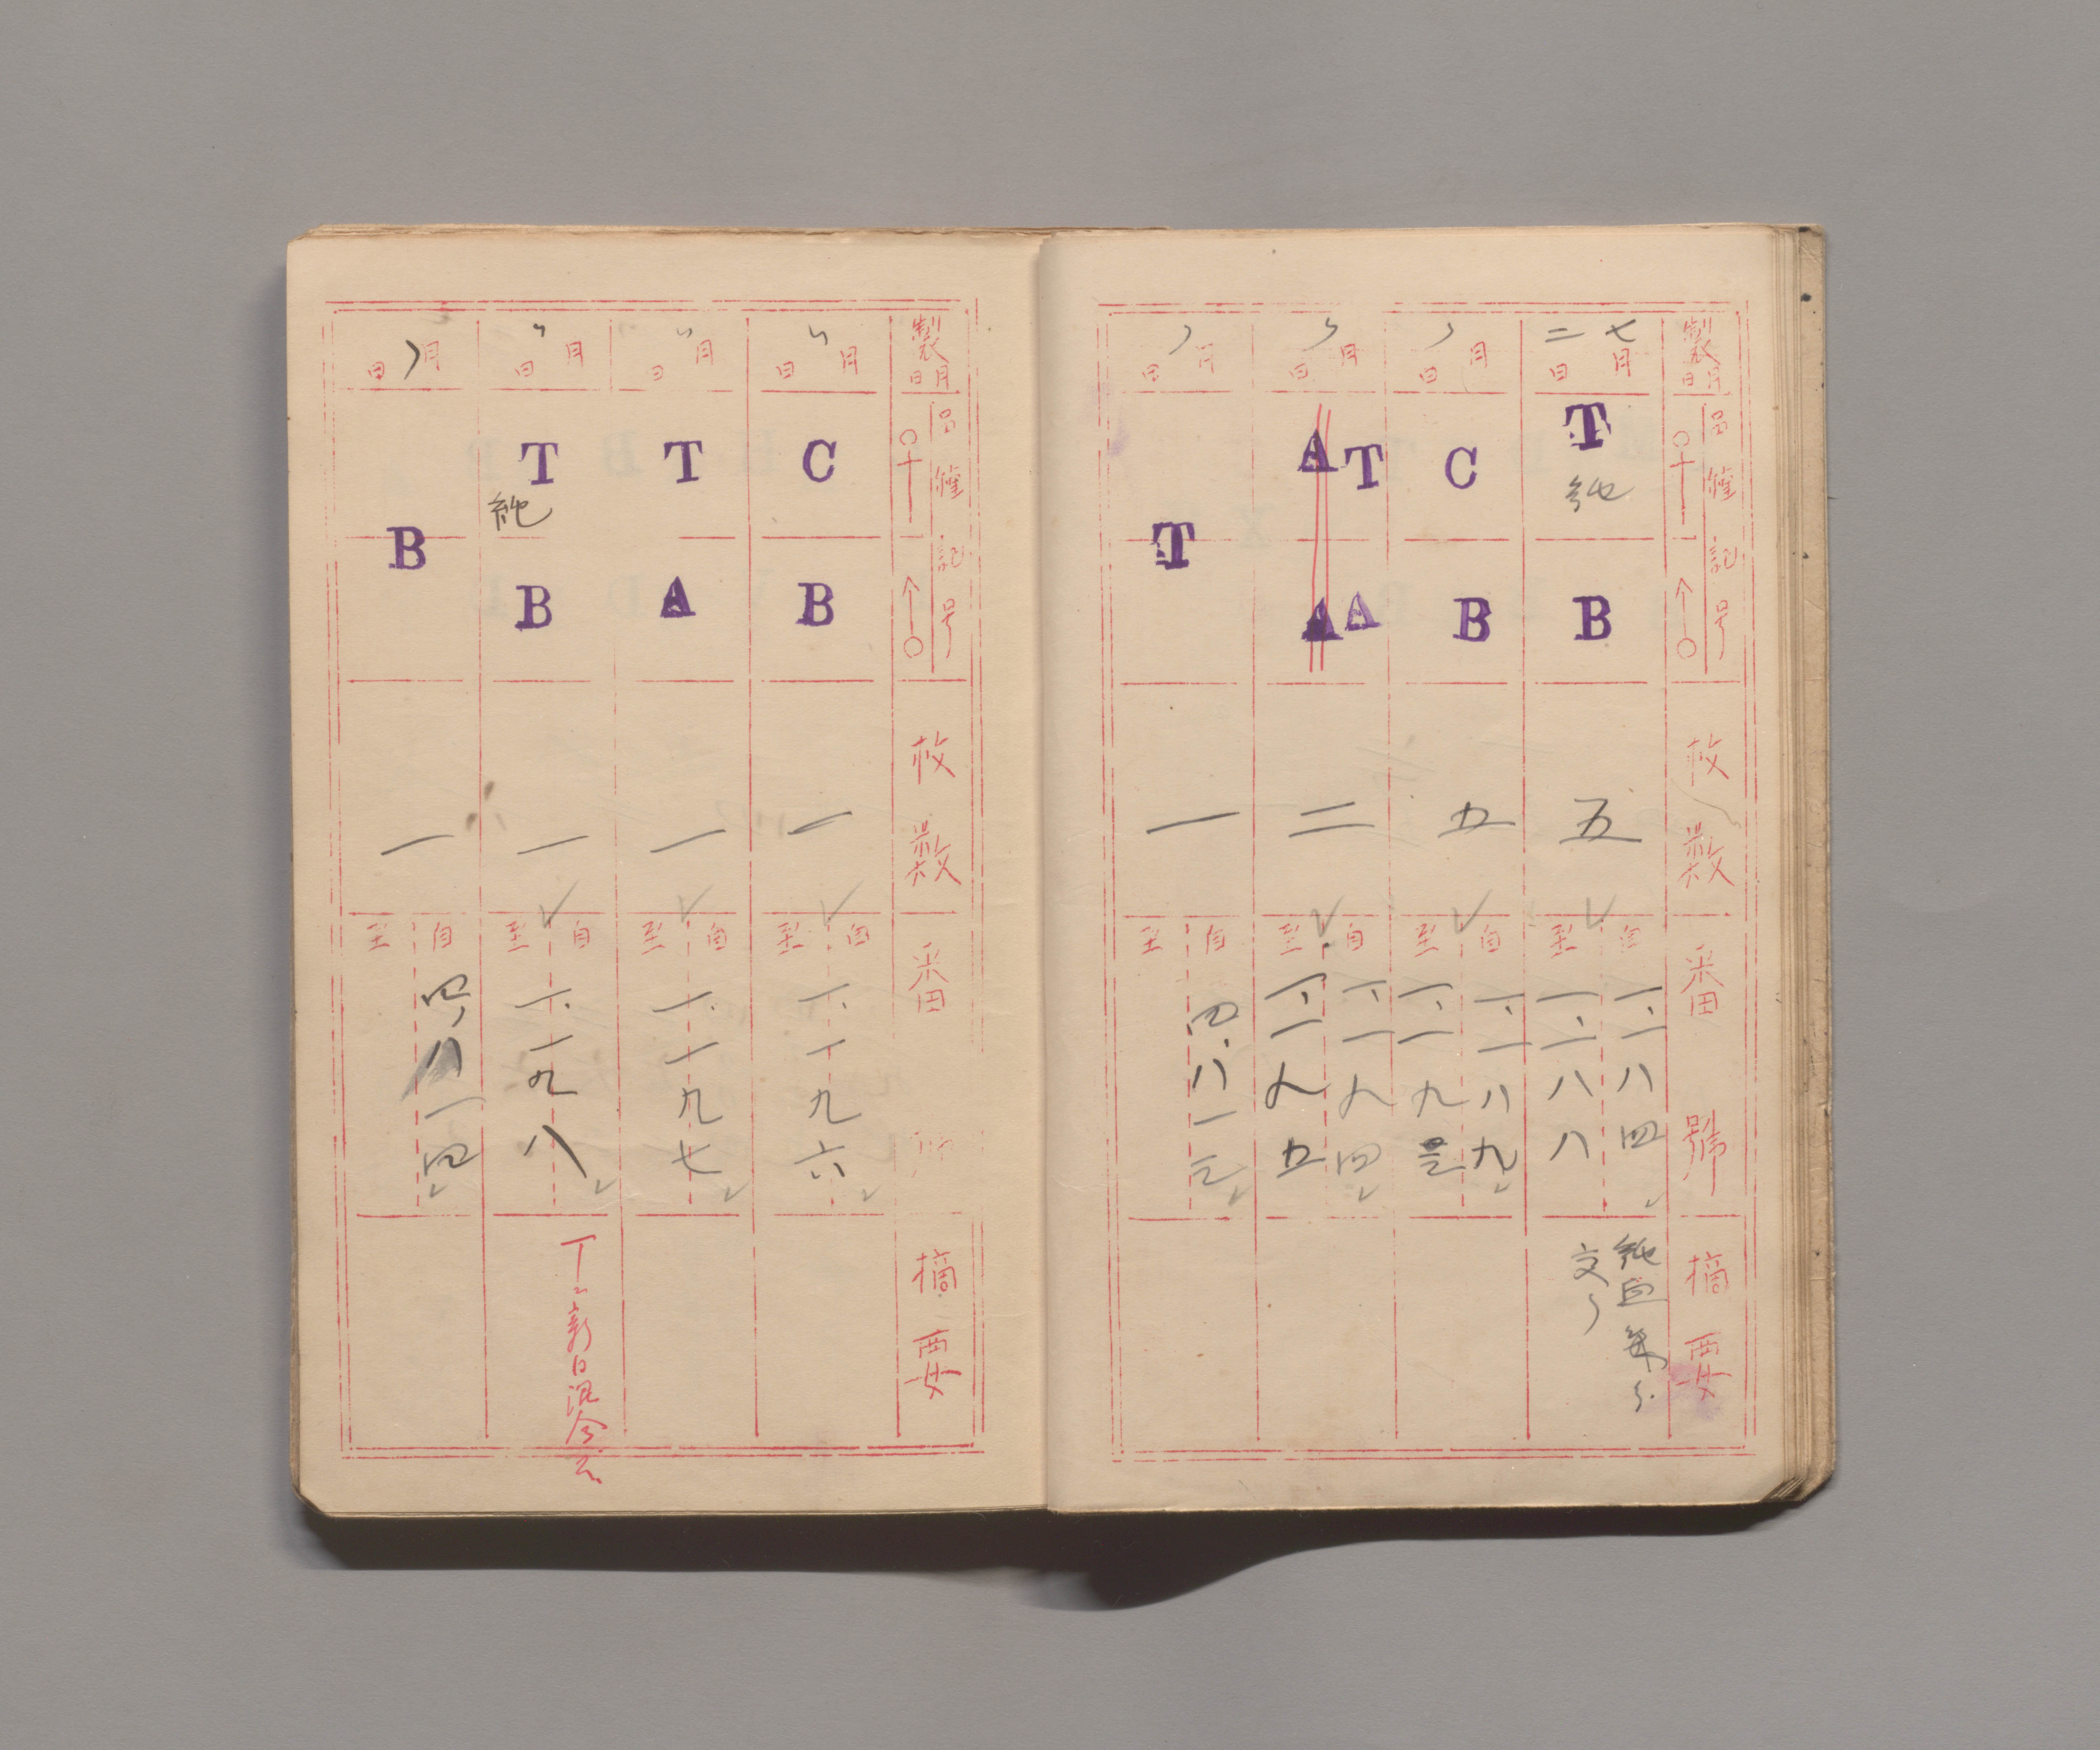 製月日
♀ ♂
品種記号
枚数
番
號
摘要
七月二日
T
純
B
五
自 一、一八四
至 一、一八八
純血
交〃
〃月日
C
B
五
自 一、一八九
至 一、一九三
〃月日
A T
A A
二
自 一、一九四
至 一、一九五
〃月日
T
一
自 四、八一三
至
製月日
♀ ♂
品種記号
枚数
番
摘要
〃月日
C
B
一
自 至
一、一九六
〃月日
T
A
一
自 至
一、一九七
〃月日
T
純
B
一
自 至
一、一九八
〃月日
B
一
自 四、八一四
至